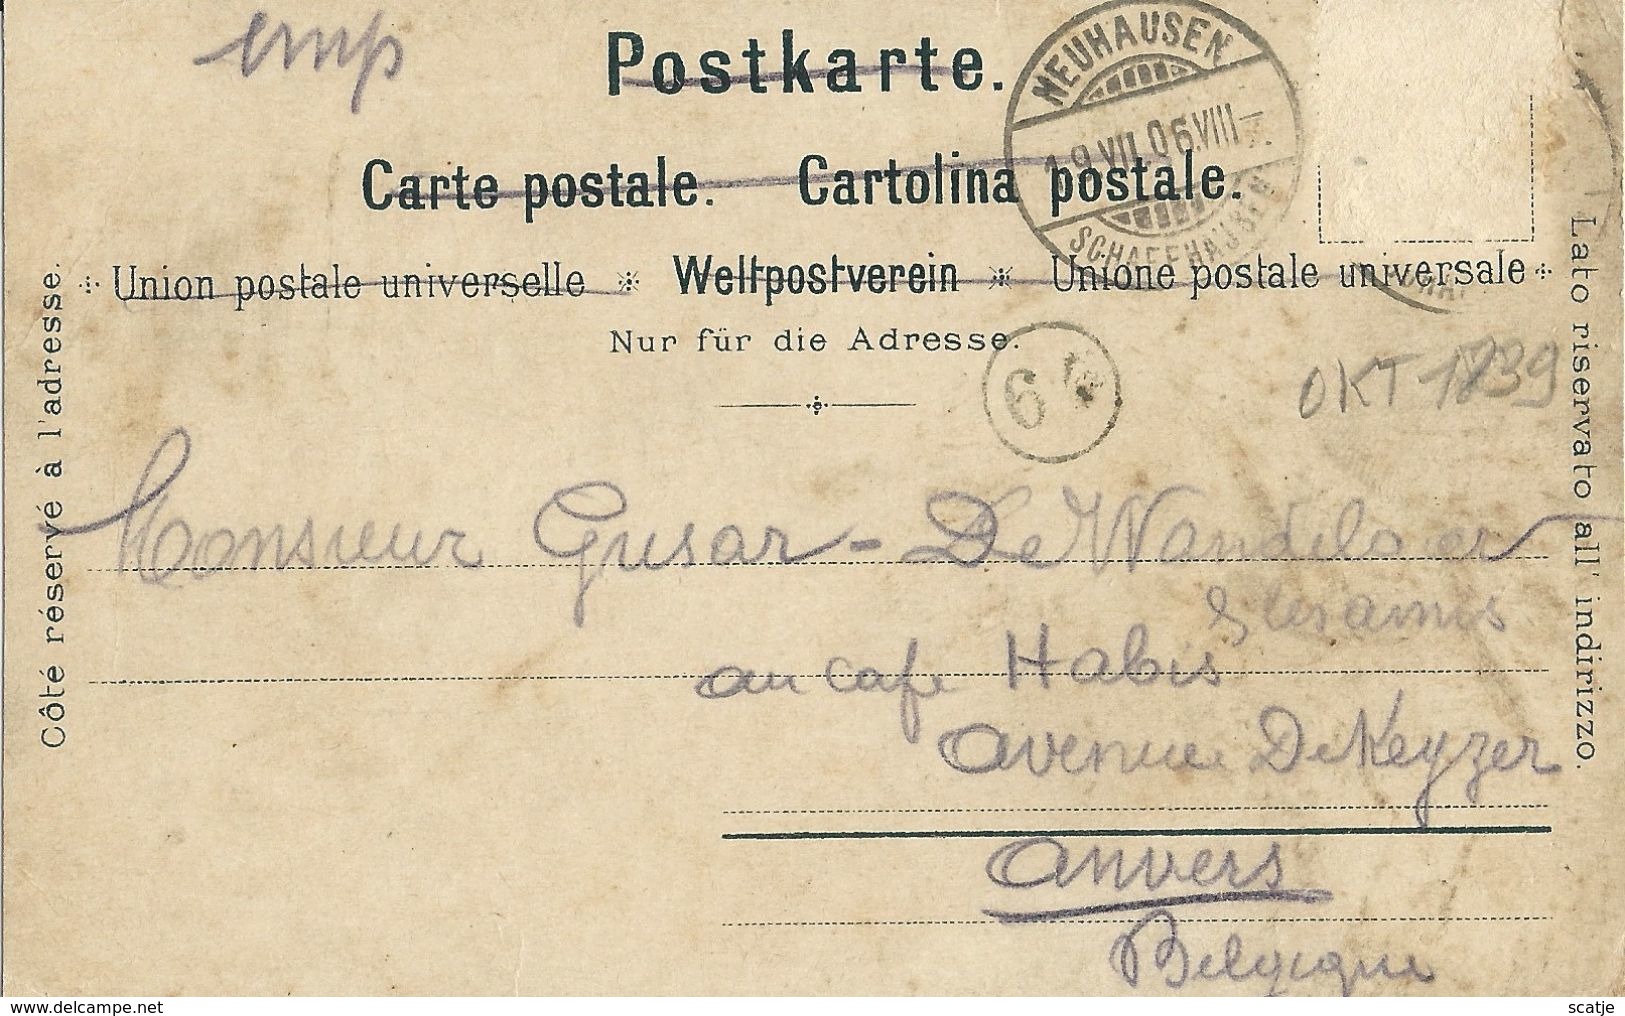 Postkarte.
Carte postale. Cartolina postale.
Union postale universelle * Weltpostverein * Unione postale universale
Nur für die Adresse.
Côté réservé à l'adresse.
Lato riservato all' indirizzo.
NEUHAUSEN
19.VII.06.VIII-
SCHAFFHAUSEN
6
OKT 1739
Monsieur Gusar - De
& les amis
au café Habis
avenue De Keyzer
Anvers
Belgique
www.delcampe.net
scatje